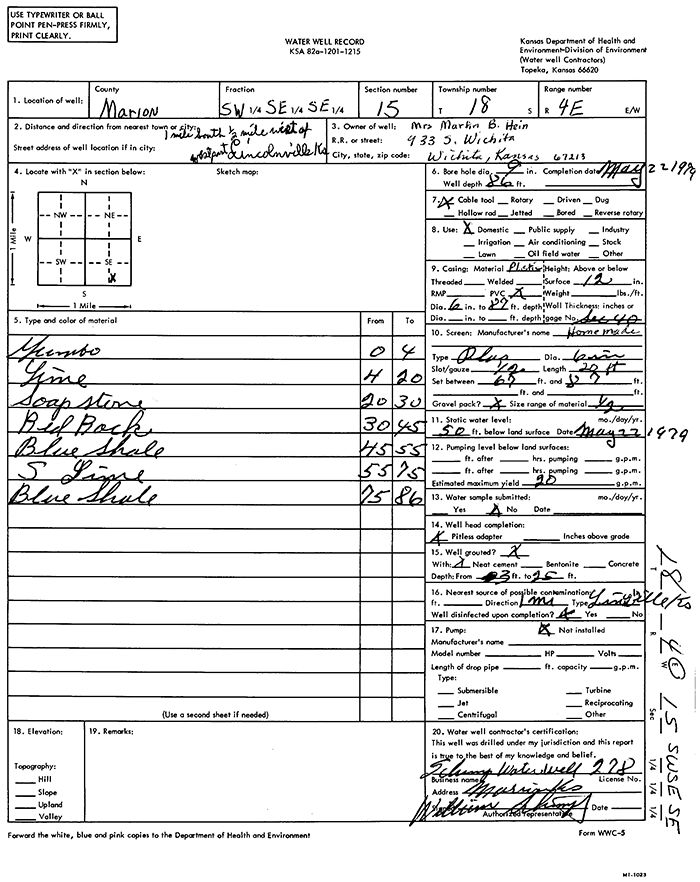 USE TYPEWRITER OR BALL
POINT PEN-PRESS FIRMLY,
PRINT CLEARLY.
WATER WELL RECORD
KSA 82a-1201-1215
Kansas Department of Health and
Environment-Division of Environment
(Water well Contractors)
Topeka, Kansas 66620
1. Location of well:
County
Marion
Fraction
SW 1/4 SE 1/4 SE 1/4
Section number
15
Township number
T 18 S
Range number
R 4E E/W
2. Distance and direction from nearest town or city: 1 mile South 1/2 mile west of
Street address of well location if in city: west part Lincolnville Ks
3. Owner of well: Mrs Martin B. Hein
R.R. or street: 933 S. Wichita
City, state, zip code: Wichita, Kansas 67213
4. Locate with "X" in section below:
Sketch map:
N
NW NE
W E
SW SE
X
S
1 Mile
1 Mile
5. Type and color of material From To
Gumbo 0 4
Lime 4 20
Soap stone 20 30
Red Rock 30 45
Blue Shale 45 55
S Lime 55 75
Blue Shale 75 86
(Use a second sheet if needed)
6. Bore hole dia. 9 in. Completion date May 22 1979
Well depth 86 ft.
7. X Cable tool Rotary Driven Dug
Hollow rod Jetted Bored Reverse rotary
8. Use: X Domestic Public supply Industry
Irrigation Air conditioning Stock
Lawn Oil field water Other
9. Casing: Material Height: Above or below
Threaded Welded Surface 12 in.
RMP PVC X Weight lbs./ft.
Dia. 6 in. to 87 ft. depth Wall Thickness: inches or
Dia. in. to ft. depth gage No.
10. Screen: Manufacturer's name Home made
Type Dia. 6 in
Slot/gauze 1/2 Length 20 ft
Set between 67 ft. and 87 ft.
ft. and ft.
Gravel pack? X Size range of material 1/2
11. Static water level: mo./day/yr.
50 ft. below land surface Date May 22 1979
12. Pumping level below land surfaces:
ft. after hrs. pumping g.p.m.
ft. after hrs. pumping g.p.m.
Estimated maximum yield 20 g.p.m.
13. Water sample submitted: mo./day/yr.
Yes X No Date
14. Well head completion:
X Pitless adapter Inches above grade
15. Well grouted? X
With: X Neat cement Bentonite Concrete
Depth: From 3 ft. to 25 ft.
16. Nearest source of possible contamination:
ft. Direction 1 mi Type
Well disinfected upon completion? X Yes No
17. Pump: X Not installed
Manufacturer's name
Model number HP Volts
Length of drop pipe ft. capacity g.p.m.
Type:
Submersible Turbine
Jet Reciprocating
Centrifugal Other
18. Elevation:
Topography:
Hill
Slope
Upland
Valley
19. Remarks:
20. Water well contractor's certification:
This well was drilled under my jurisdiction and this report
is true to the best of my knowledge and belief.
Water Well 278
Business name License No.
Address
Date
Authorized representative
T 18 R 4 E W Sec 15 SW SE SE 1/4 1/4 1/4
Forward the white, blue and pink copies to the Department of Health and Environment
Form WWC-5
M1-1023